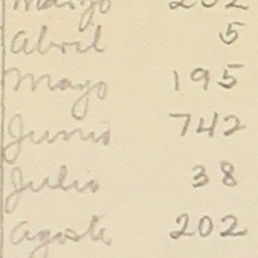 Marzo 202
Abril 5
Mayo 195
Junio 742
Julio 38
Agosto 202